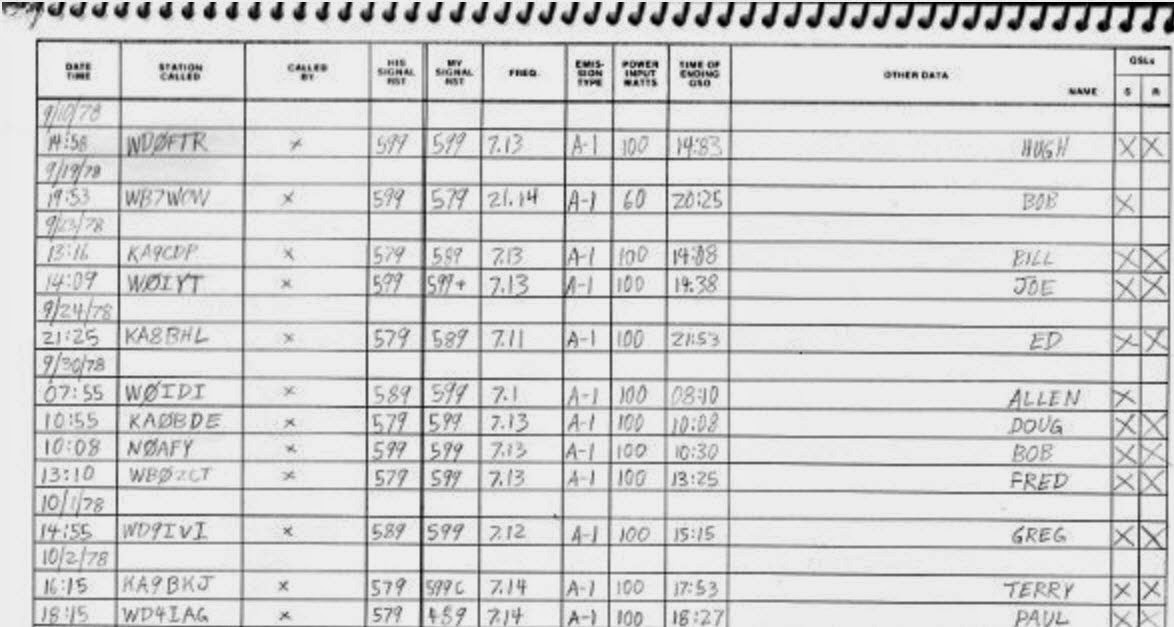 DATE TIME STATION CALLED CALLED BY HIS SIGNAL RST MY SIGNAL RST FREQ. EMIS-SION TYPE POWER INPUT WATTS TIME OF ENDING QSO OTHER DATA NAME QSLs S R
9/10/78
14:58 WDØFTR × 599 599 7.13 A-1 100 14:83 HUGH X X
9/19/78
19:53 WB7WOW × 599 579 21.14 A-1 60 20:25 BOB X
9/23/78
13:16 KA9CDP × 579 589 7.13 A-1 100 BILL X X
14:09 WØIYT × 599 599+ 7.13 A-1 100 14:38 JOE X X
9/24/78
21:25 KA8BHL × 579 589 7.11 A-1 100 21:53 ED X X
9/30/78
07:55 WØIDI × 589 599 7.1 A-1 100 08:10 ALLEN X
10:55 KAØBDE × 579 599 7.13 A-1 100 10:08 DOUG X X
10:08 NØAFY × 599 599 7.13 A-1 100 10:30 BOB X X
13:10 WBØZCT × 579 599 7.13 A-1 100 13:25 FRED X X
10/1/78
14:55 WD9IVI × 589 599 7.12 A-1 100 15:15 GREG X X
10/2/78
16:15 KA9BKJ × 579 599C 7.14 A-1 100 17:53 TERRY X X
18:15 WD4IAG × 579 459 7.14 A-1 100 18:27 PAUL X X